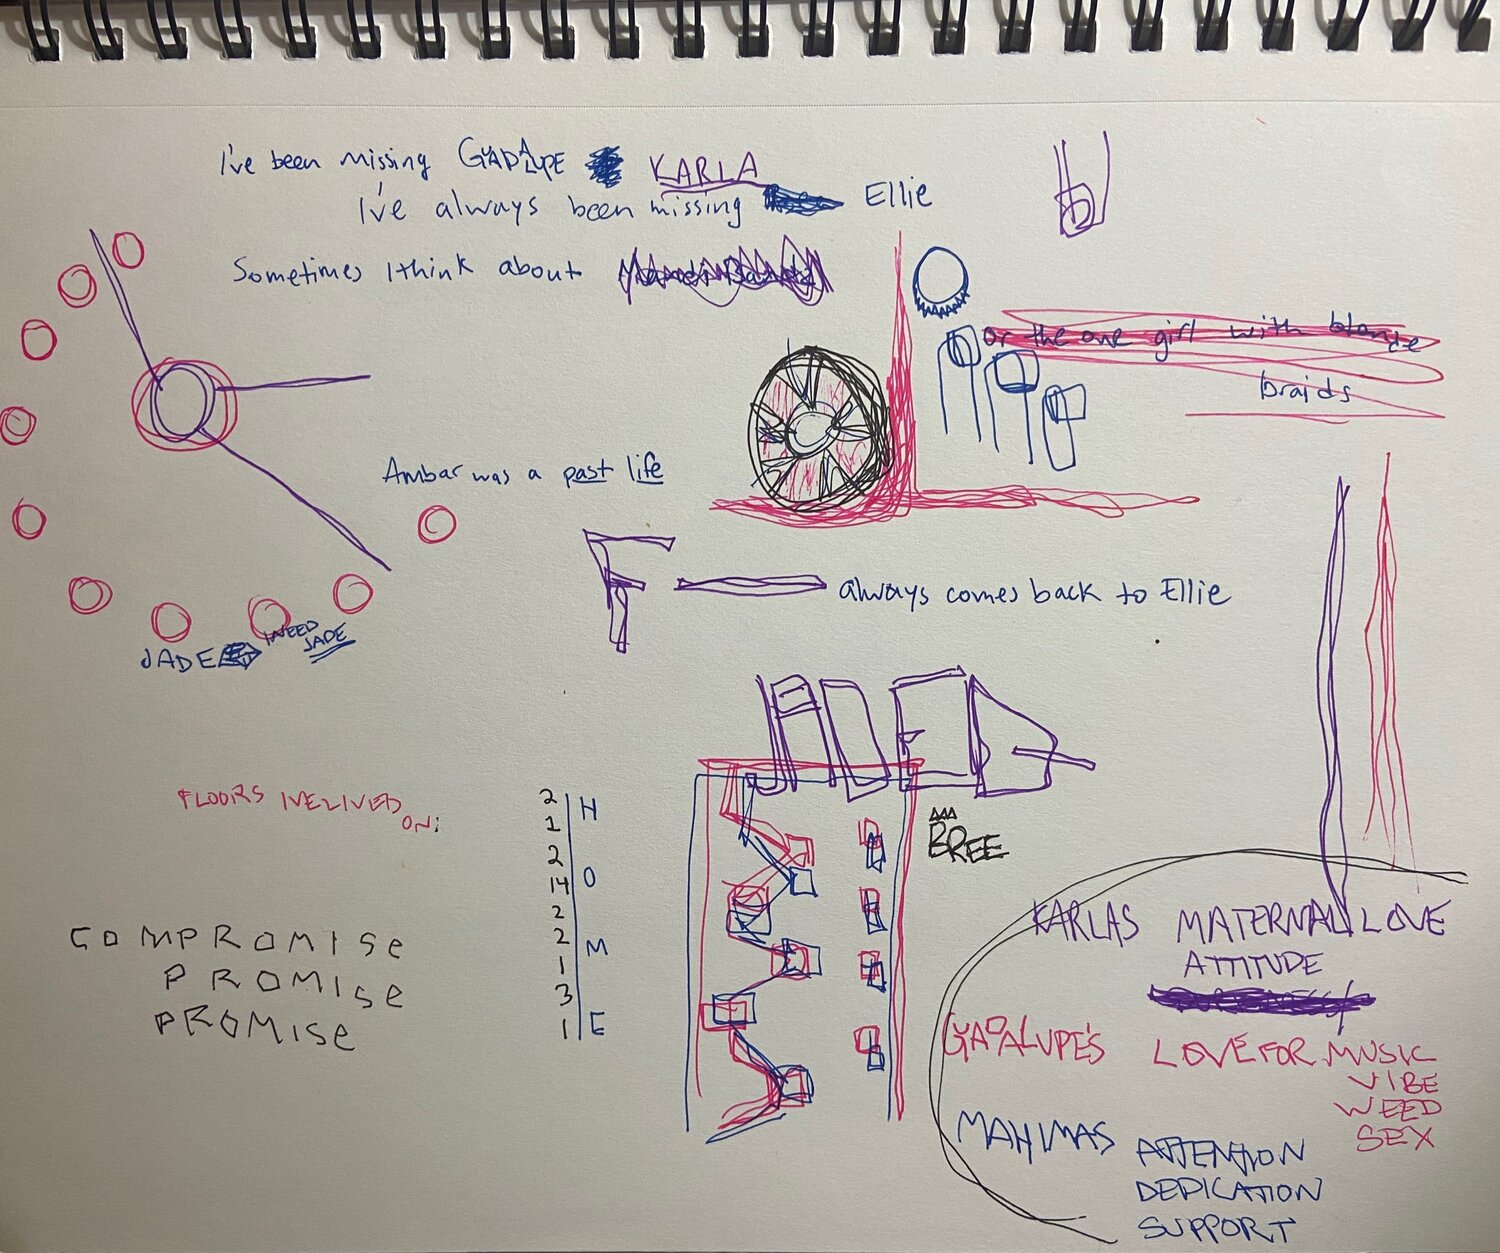 I've been missing GUADALUPE KARLA
I've always been missing Ellie
Sometimes I think about
or the one girl with blonde
braids
Ambar was a past life
always comes back to Ellie
JADE I NEED
JADE
BREE
FLOORS IVE LIVED
ON:
2
1
2
14
2
2
1
3
1
H
O
M
E
COMPROMISE
PROMISE
PROMISE
KARLAS MATERNAL LOVE
ATTITUDE
GUADALUPE'S LOVE FOR MUSIC
VIBE
WEED
SEX
MAHIMAS ATTENTION
DEDICATION
SUPPORT